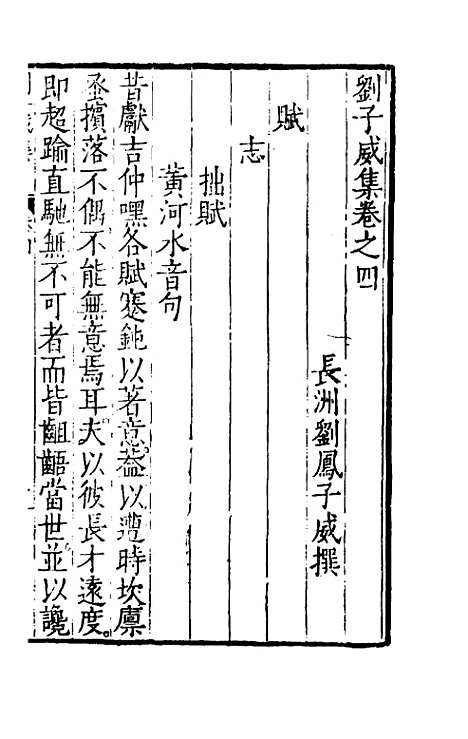 劉子威集卷之四
長洲劉鳳子威撰
賦
志
拙賦
黃河水音句
昔獻吉仲嘿各賦蹇鈍以著意葢以遭時坎廪
壅擯落不偶不能無意焉耳夫以彼長才遠度
即超踰直馳無不可者而皆齟齬當世並以讒